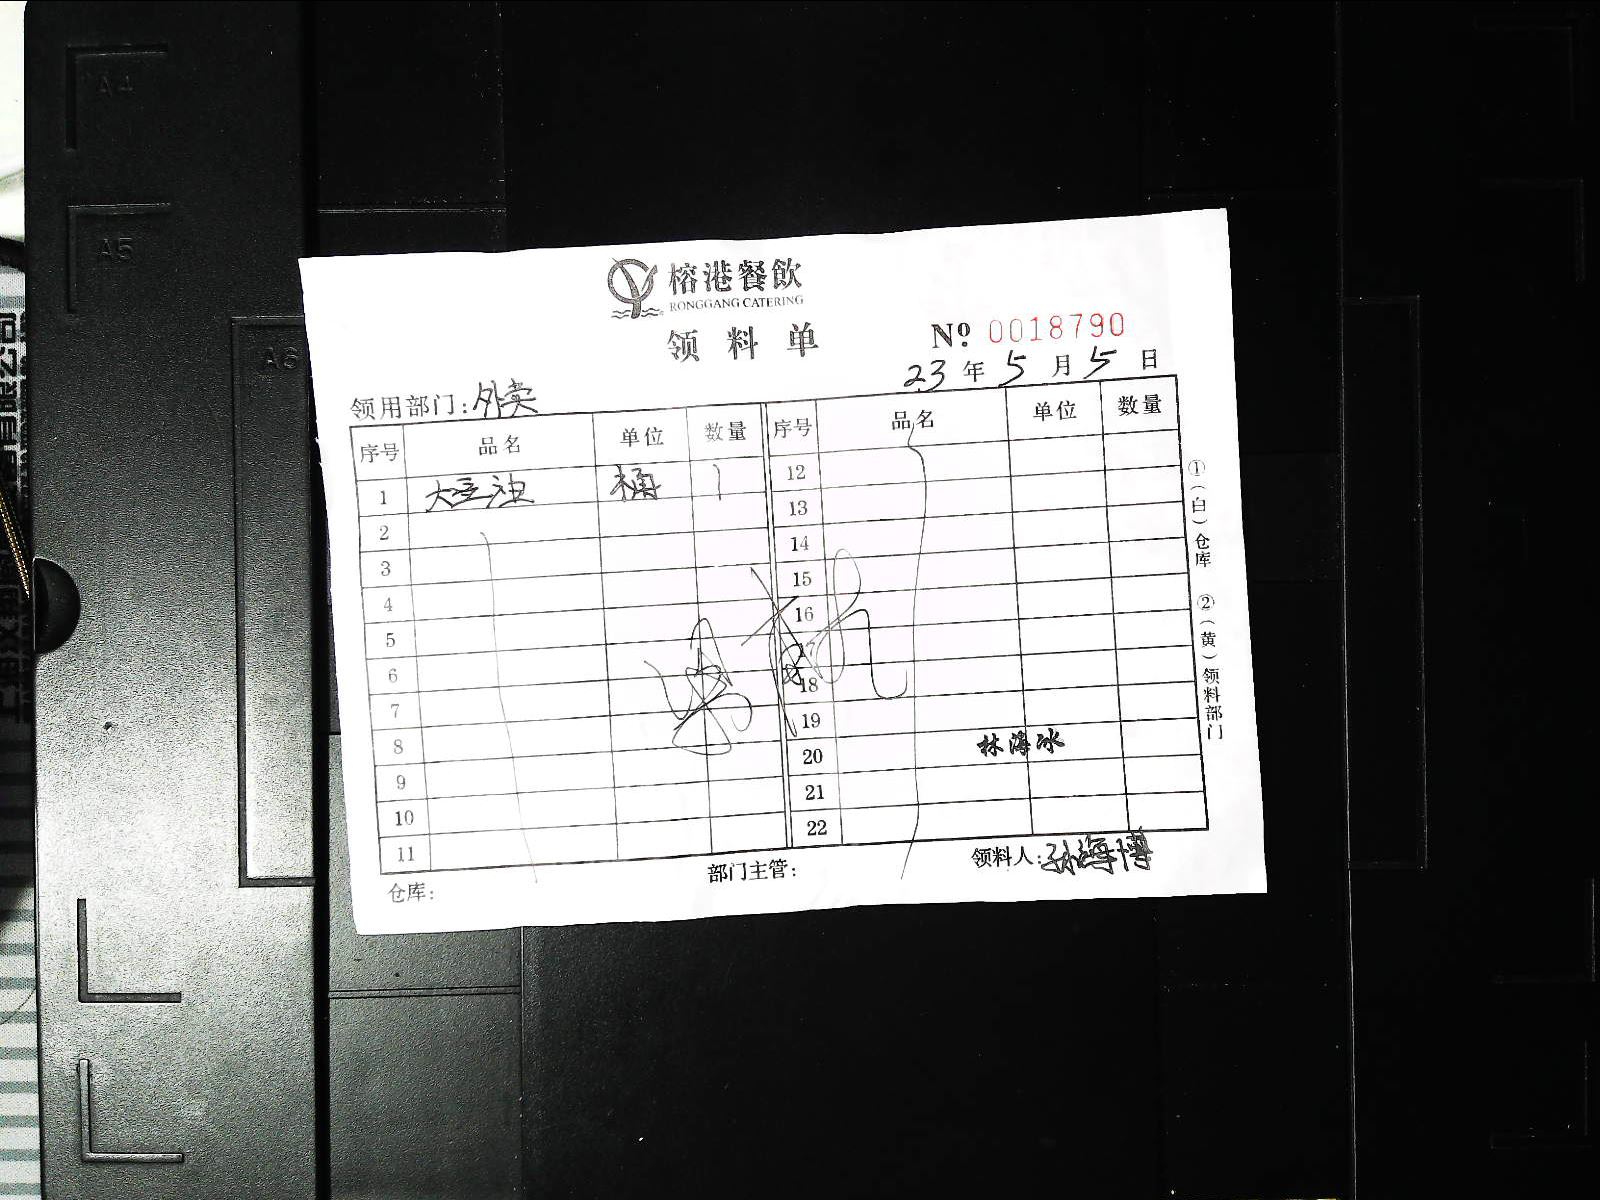 A4
A5
A6
榕港餐飲
RONGGANG CATERING
领料单
Nº 0018790
23年5月5日
领用部门:外卖
序号 品名 单位 数量 序号 品名 单位 数量
1 大豆油 桶 1 12
2 13
3 14
4 15
5 16
6 17
7 18
8 19
9 20 林海冰
10 21
11 22
仓库: 部门主管: 领料人:孙海博
①(白)仓库 ②(黄)领料部门